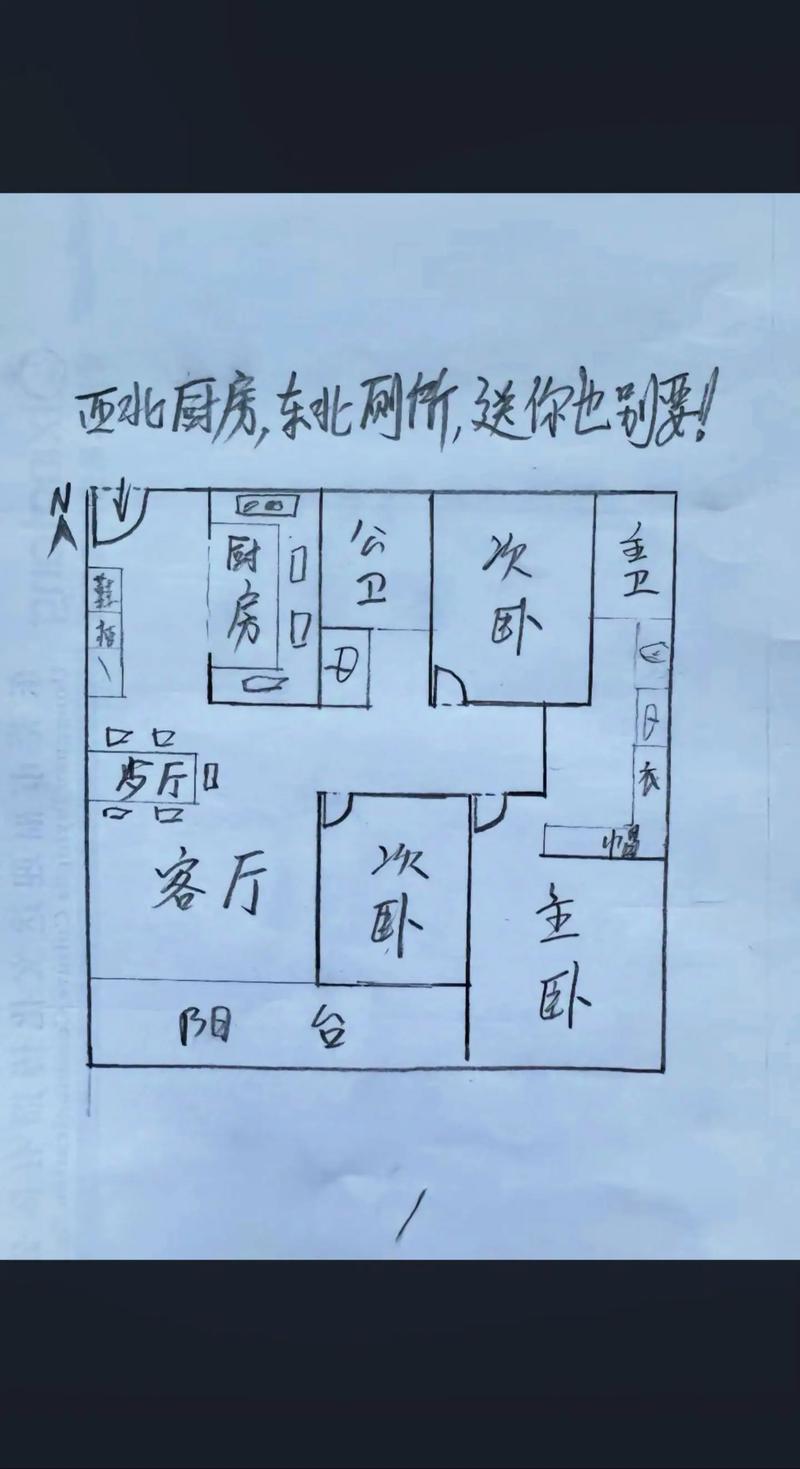 西北厨房,东北厕所,送你也别要!
N
厨房
公卫
次卧
主卫
鞋柜
歺厅
衣
帽
客厅
次卧
主卧
阳台